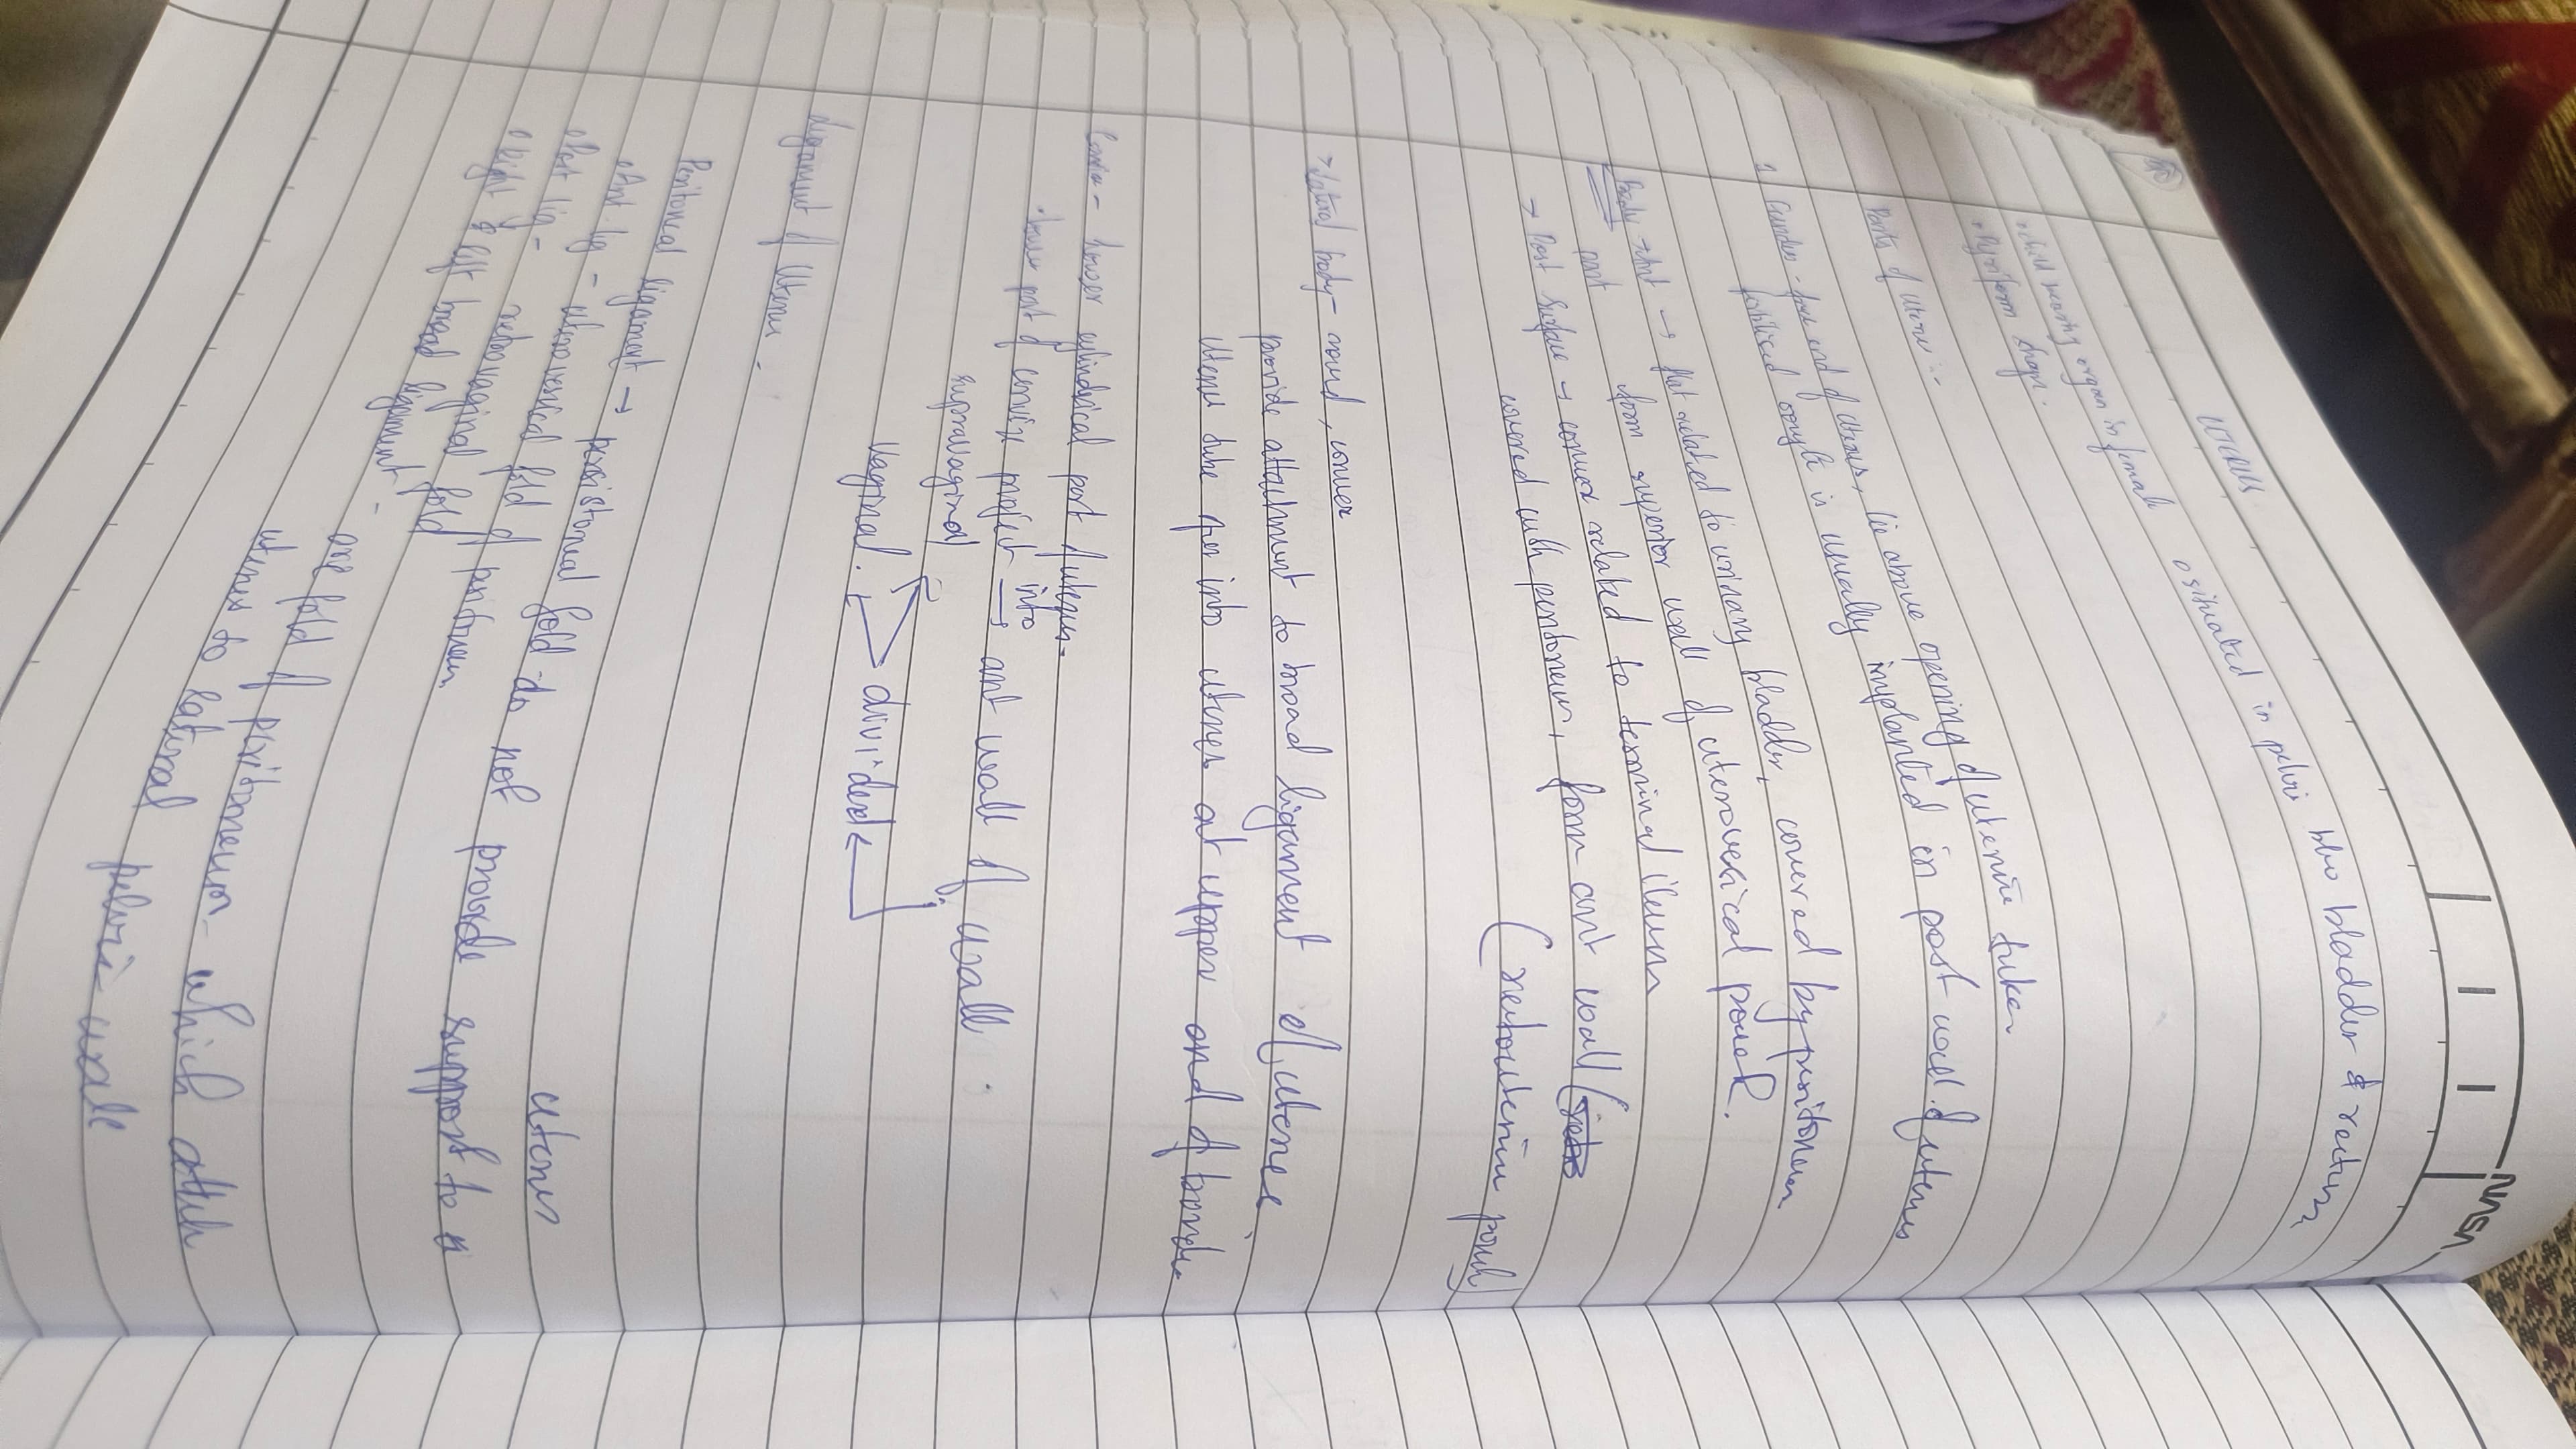 UTERUS
• child bearing organ in female
o situated in pelvis b/w bladder & rectum
• Pyriform shape.
Parts of uterus :-
1 Fundus - free end of uterus, lie above opening of uterine tube.
fertilized is usually implanted in post wall of uterus
Body → Ant → flat related to urinary bladder, covered by peritoneum
part form superior wall of uterovesical pouch.
→ Post surface → convex related to terminal ileum
covered with peritoneum, form ant wall (
(rectouterine pouch)
→ lateral body - round, convex
provide attachment to broad ligament of uterus
uterine tube open into uterus at upper end of border
Cervix - lower cylindrical part of uterus.
• lower part of cervix project into → ant wall of wall.
supravaginal
vaginal. divided
ligament of Uterus -
Peritoneal ligament → peristoneal fold - do not provide support to
uterus
• Ant. lig - uterovesical fold of peritoneum
• Post lig - rectovaginal fold
• Right & left broad ligament -
are fold of peritoneum - which attach
uterus to lateral pelvic wall